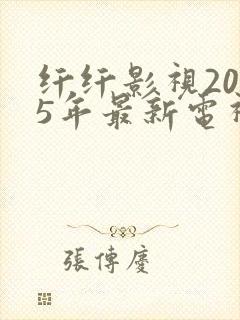 纤纤影視20
5年最新電視
張傳慶